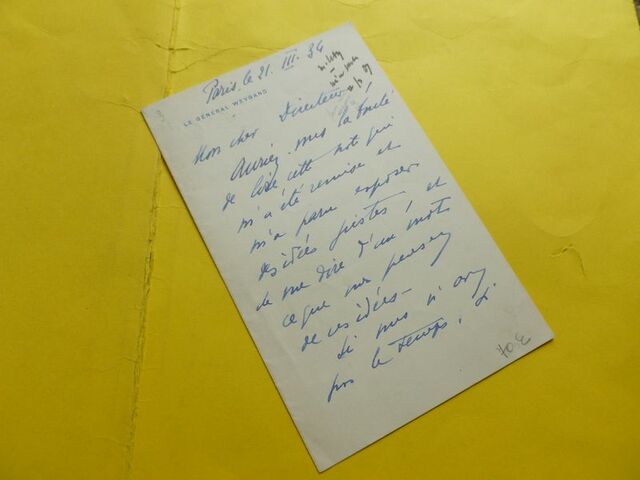 Paris, le 21. III. 34
LE GÉNÉRAL WEYGAND
Mon cher Directeur,
Auriez-vous la bonté
de lire cette note qui
m'a été remise et
m'a paru exposer
des idées justes, et
de me dire d'un mot
ce que vous pensez
de ces idées –
Si vous n'avez
pas le temps,